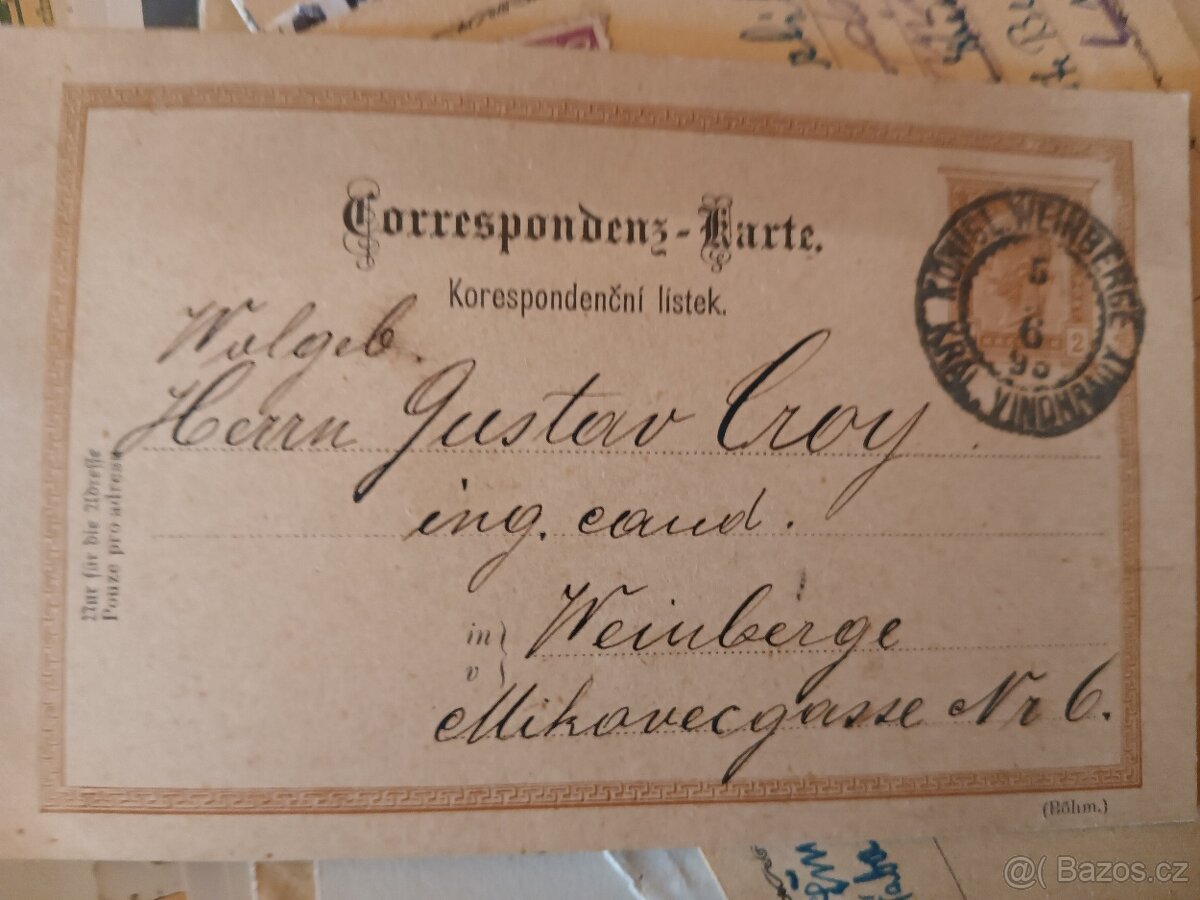 Correspondenz-Karte.
Korespondenční lístek.
KÖNIGL. WEINBERGE
5
6
KRÁL. VINOHRADY
2
Wolgeb.
Herrn Gustav Croy
ing. cand.
in
v
Weinberge
Mikovecgasse Nr 6.
Nur für die Adresse
Pouze pro adresu
(Böhm.)
Bazos.cz